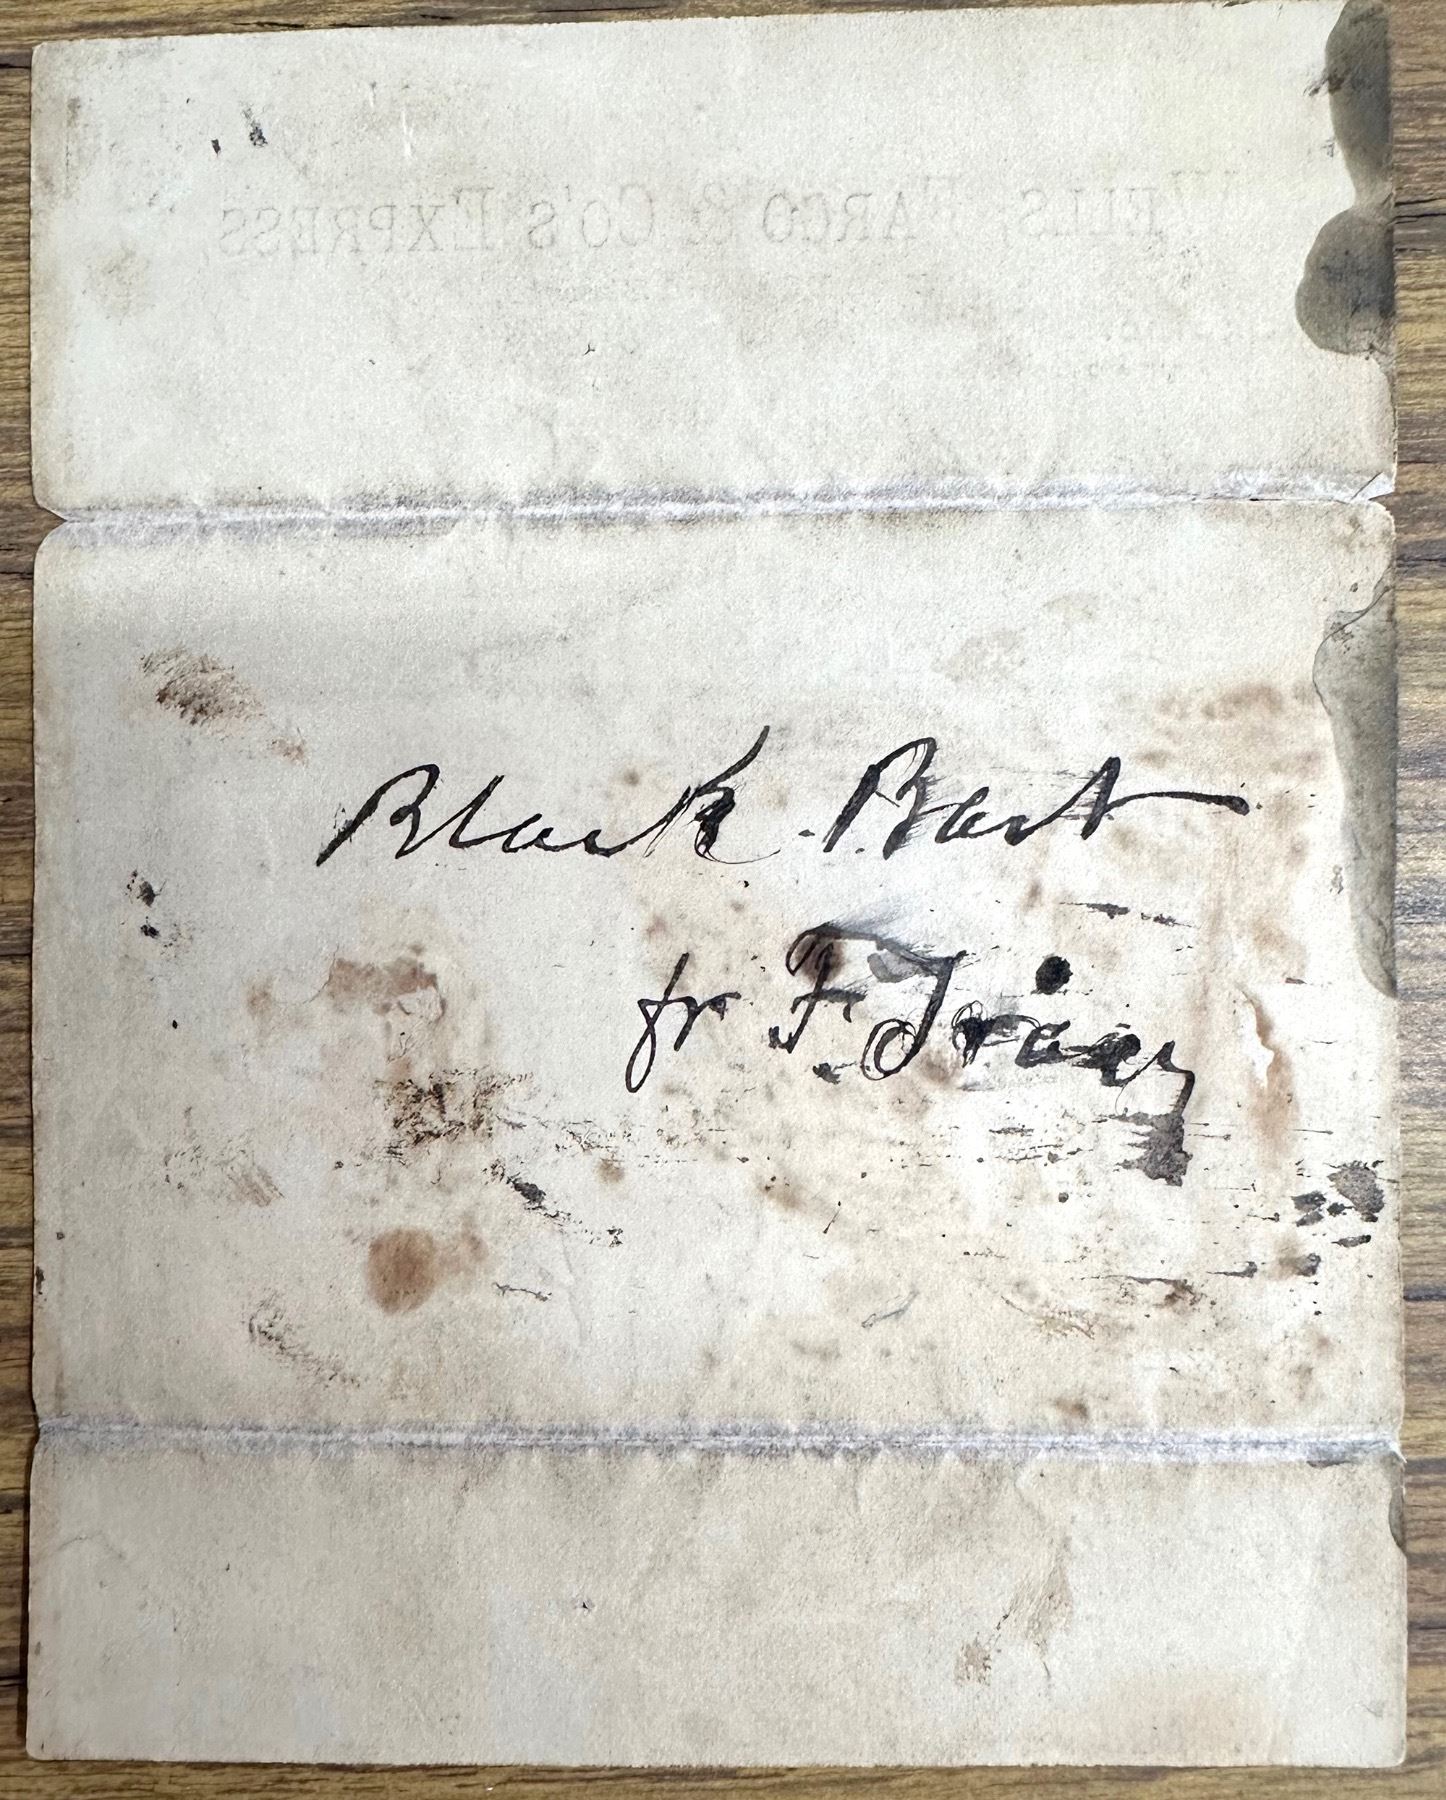 WELLS, FARGO & CO'S EXPRESS
Black Bart
fr F.